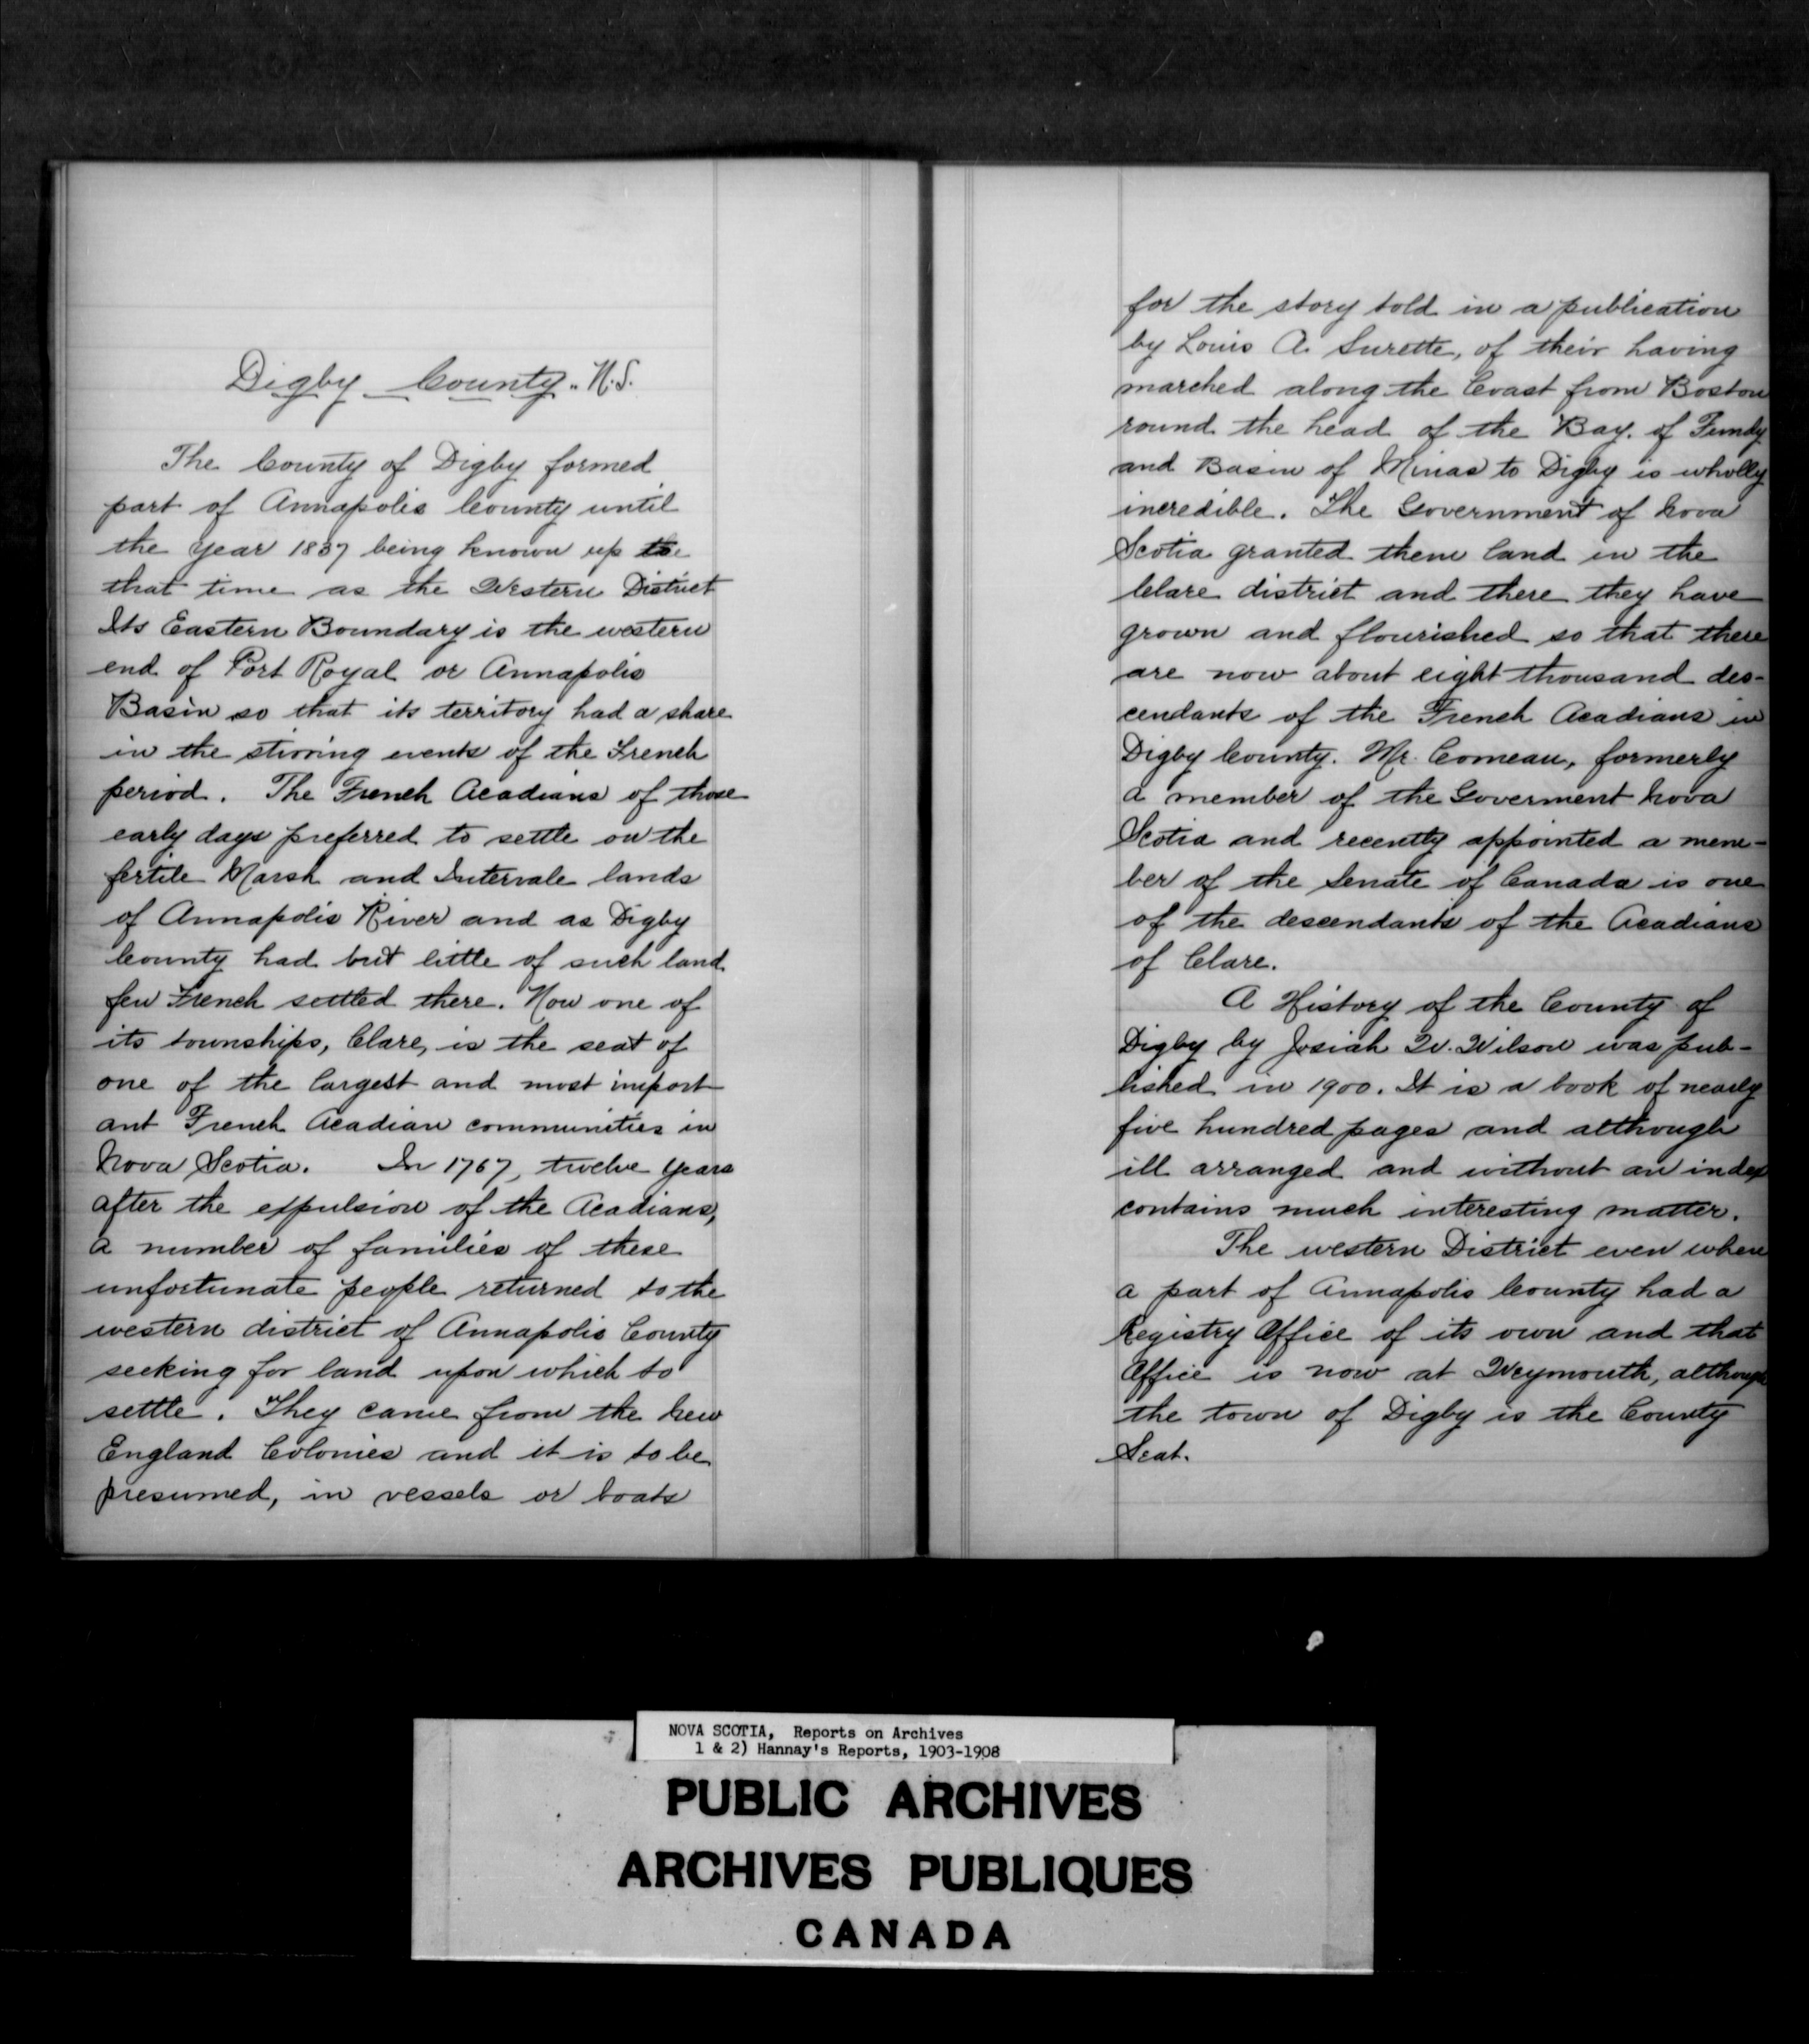 Digby County. N.S.
The County of Digby formed
part of Annapolis County until
the year 1837 being known up to
that time as the Western District
Its Eastern Boundary is the western
end of Port Royal or Annapolis
Basin so that its territory had a share
in the stirring events of the French
period. The French Acadians of those
early days preferred to settle on the
fertile Marsh and Intervale lands
of Annapolis River and as Digby
County had but little of such land
few French settled there. Now one of
its townships, Clare, is the seat of
one of the largest and most import
ant French Acadian communities in
Nova Scotia. In 1767, twelve years
after the expulsion of the Acadians,
a number of families of these
unfortunate people returned to the
western district of Annapolis County
seeking for land upon which to
settle. They came from the New
England Colonies and it is to be
presumed, in vessels or boats
for the story told in a publication
by Louis A. Surette, of their having
marched along the Coast from Boston
round the head of the Bay. of Fundy
and Basin of Minas to Digby is wholly
incredible. The Government of Nova
Scotia granted them land in the
Clare district and there they have
grown and flourished so that there
are now about eight thousand des-
cendants of the French Acadians in
Digby County. Mr. Comeau, formerly
a member of the Goverment Nova
Scotia and recently appointed a mem-
ber of the Senate of Canada is one
of the descendants of the Acadians
of Clare.
A History of the County of
Digby by Josiah W. Wilson was pub-
lished in 1900. It is a book of nearly
five hundred pages and although
ill arranged and without an index
contains much interesting matter.
The western District even when
a part of Annapolis County had a
Registry Office of its own and that
Office is now at Weymouth, although
the town of Digby is the County
Seat.
NOVA SCOTIA, Reports on Archives
1 & 2) Hannay's Reports, 1903-1908
PUBLIC ARCHIVES
ARCHIVES PUBLIQUES
CANADA